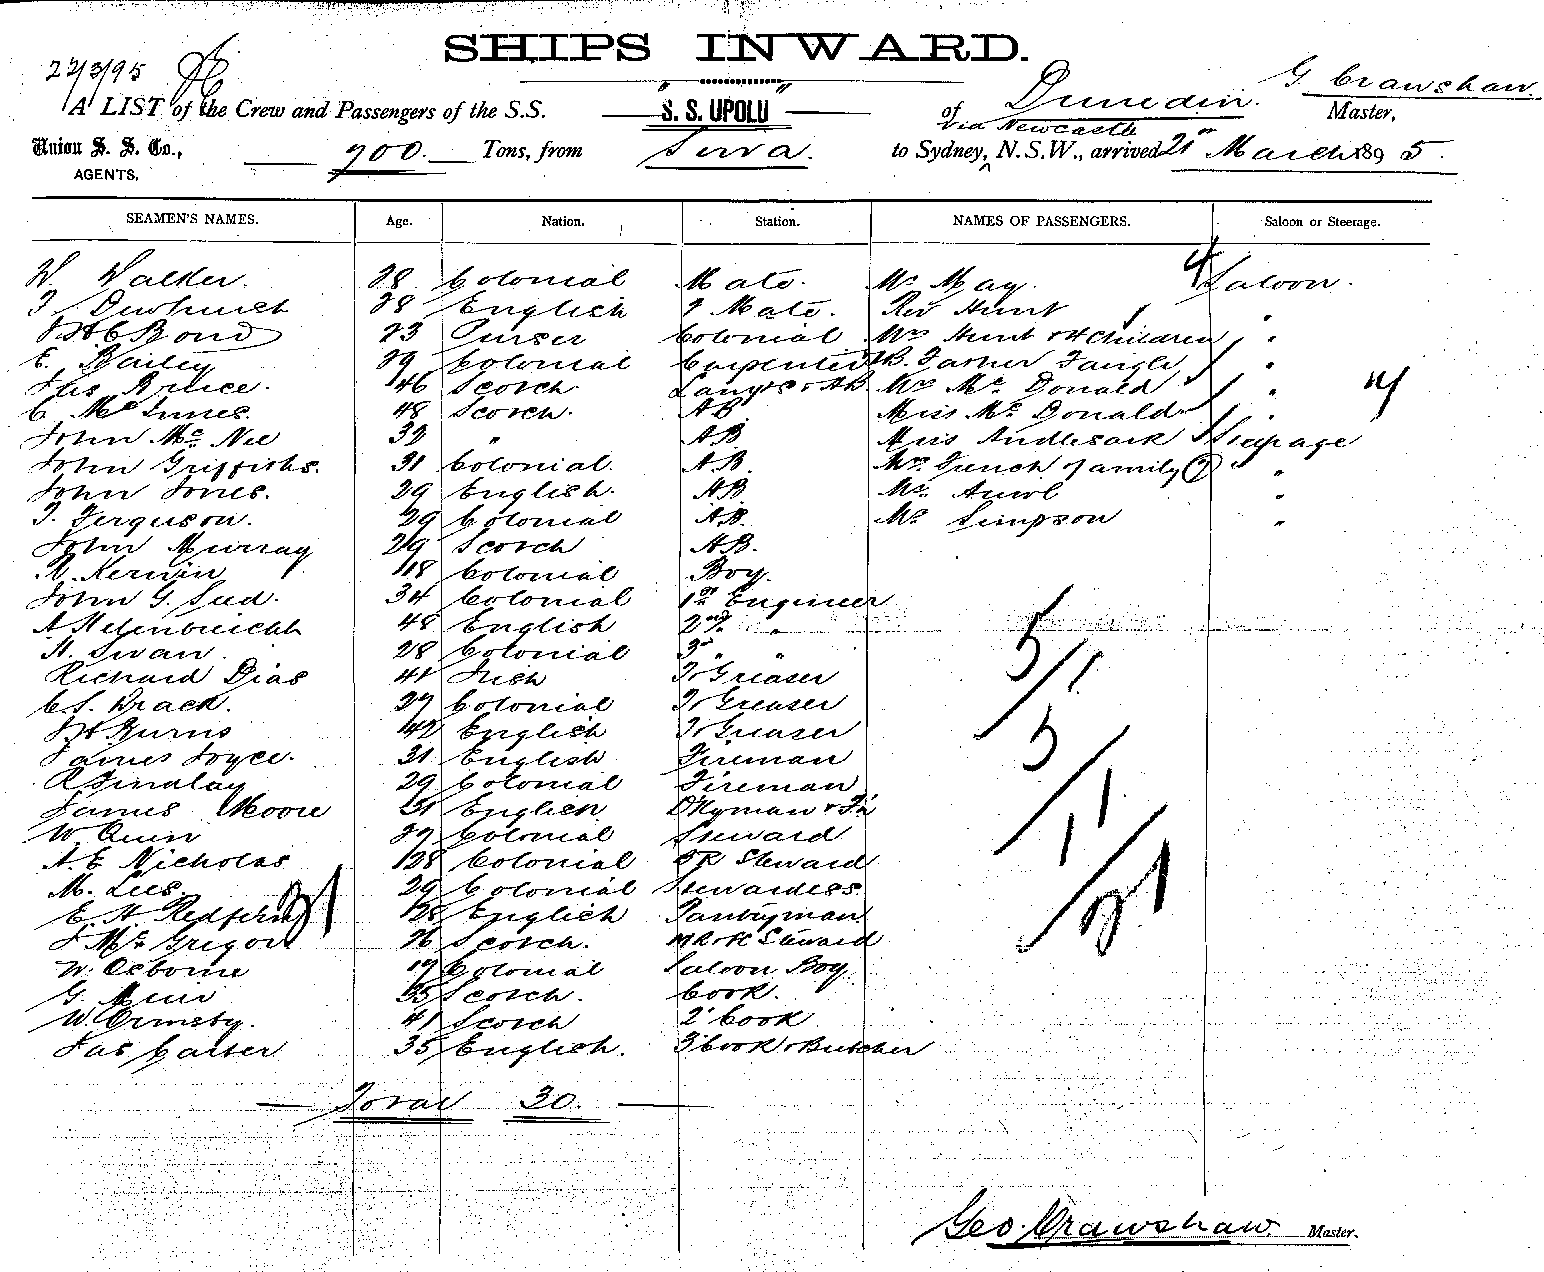 SHIPS INWARD.
22/3/95
G Crawshaw.
A LIST of the Crew and Passengers of the S.S. " S. S. UPOLU " of Dunedin. Master,
via Newcastle
Union S. S. Co., 700. Tons, from Suva. to Sydney, N.S.W., arrived 21st March 1895.
AGENTS.
SEAMEN'S NAMES. Age. Nation. Station. NAMES OF PASSENGERS. Saloon or Steerage.
W Walker. 38 Colonial Mate. Mr May 4 Saloon.
T Dewhurst 28 English 2 Mate. Rev Hunt "
Bond 23 Purser Colonial Mrs Hunt & 4 Children "
E. Bailey 29 Colonial Carpenter Father "
Jas Bruce. 46 Scotch Lamps & AB Mrs McDonald " 14
C McInnes. 48 Scotch. AB Miss McDonald "
John McNee 32 " AB Miss Steerage
John Griffiths. 31 Colonial. AB. Mrs French & family (7) "
John Jones. 29 English. AB Mr. "
T. Ferguson. 29 Colonial AB. Mr Simpson "
John Murray 29 Scotch AB.
Kerwin 18 Colonial Boy.
John G. Sud. 34 Colonial 1st Engineer
A 48 English 2nd "
Swan 28 Colonial 3rd "
Richard Dias 41 Irish Greaser
C S. Brack. 27 Colonial Greaser
Burns 42 English Greaser
James Joyce. 31 English Fireman
R Findlay 29 Colonial Fireman
James Moore 21 English D'Kyman & Fn
W Quin 37 Colonial Steward
A. E Nicholas 28 Colonial Steward
M. Lees. 29 Colonial Stewardess
E H Redfern 28 English Pantryman
J McGregor 26 Scotch. Steward
W. Osborne 17 Colonial Saloon Boy
G. Muir 35 Scotch. Cook.
W. Ormsby. 41 Scotch 2 Cook
Jas Carter 35 English. 3 Cook & Butcher
31
5/1
5/11
1/21
Total 30.
Geo. Crawshaw. Master.